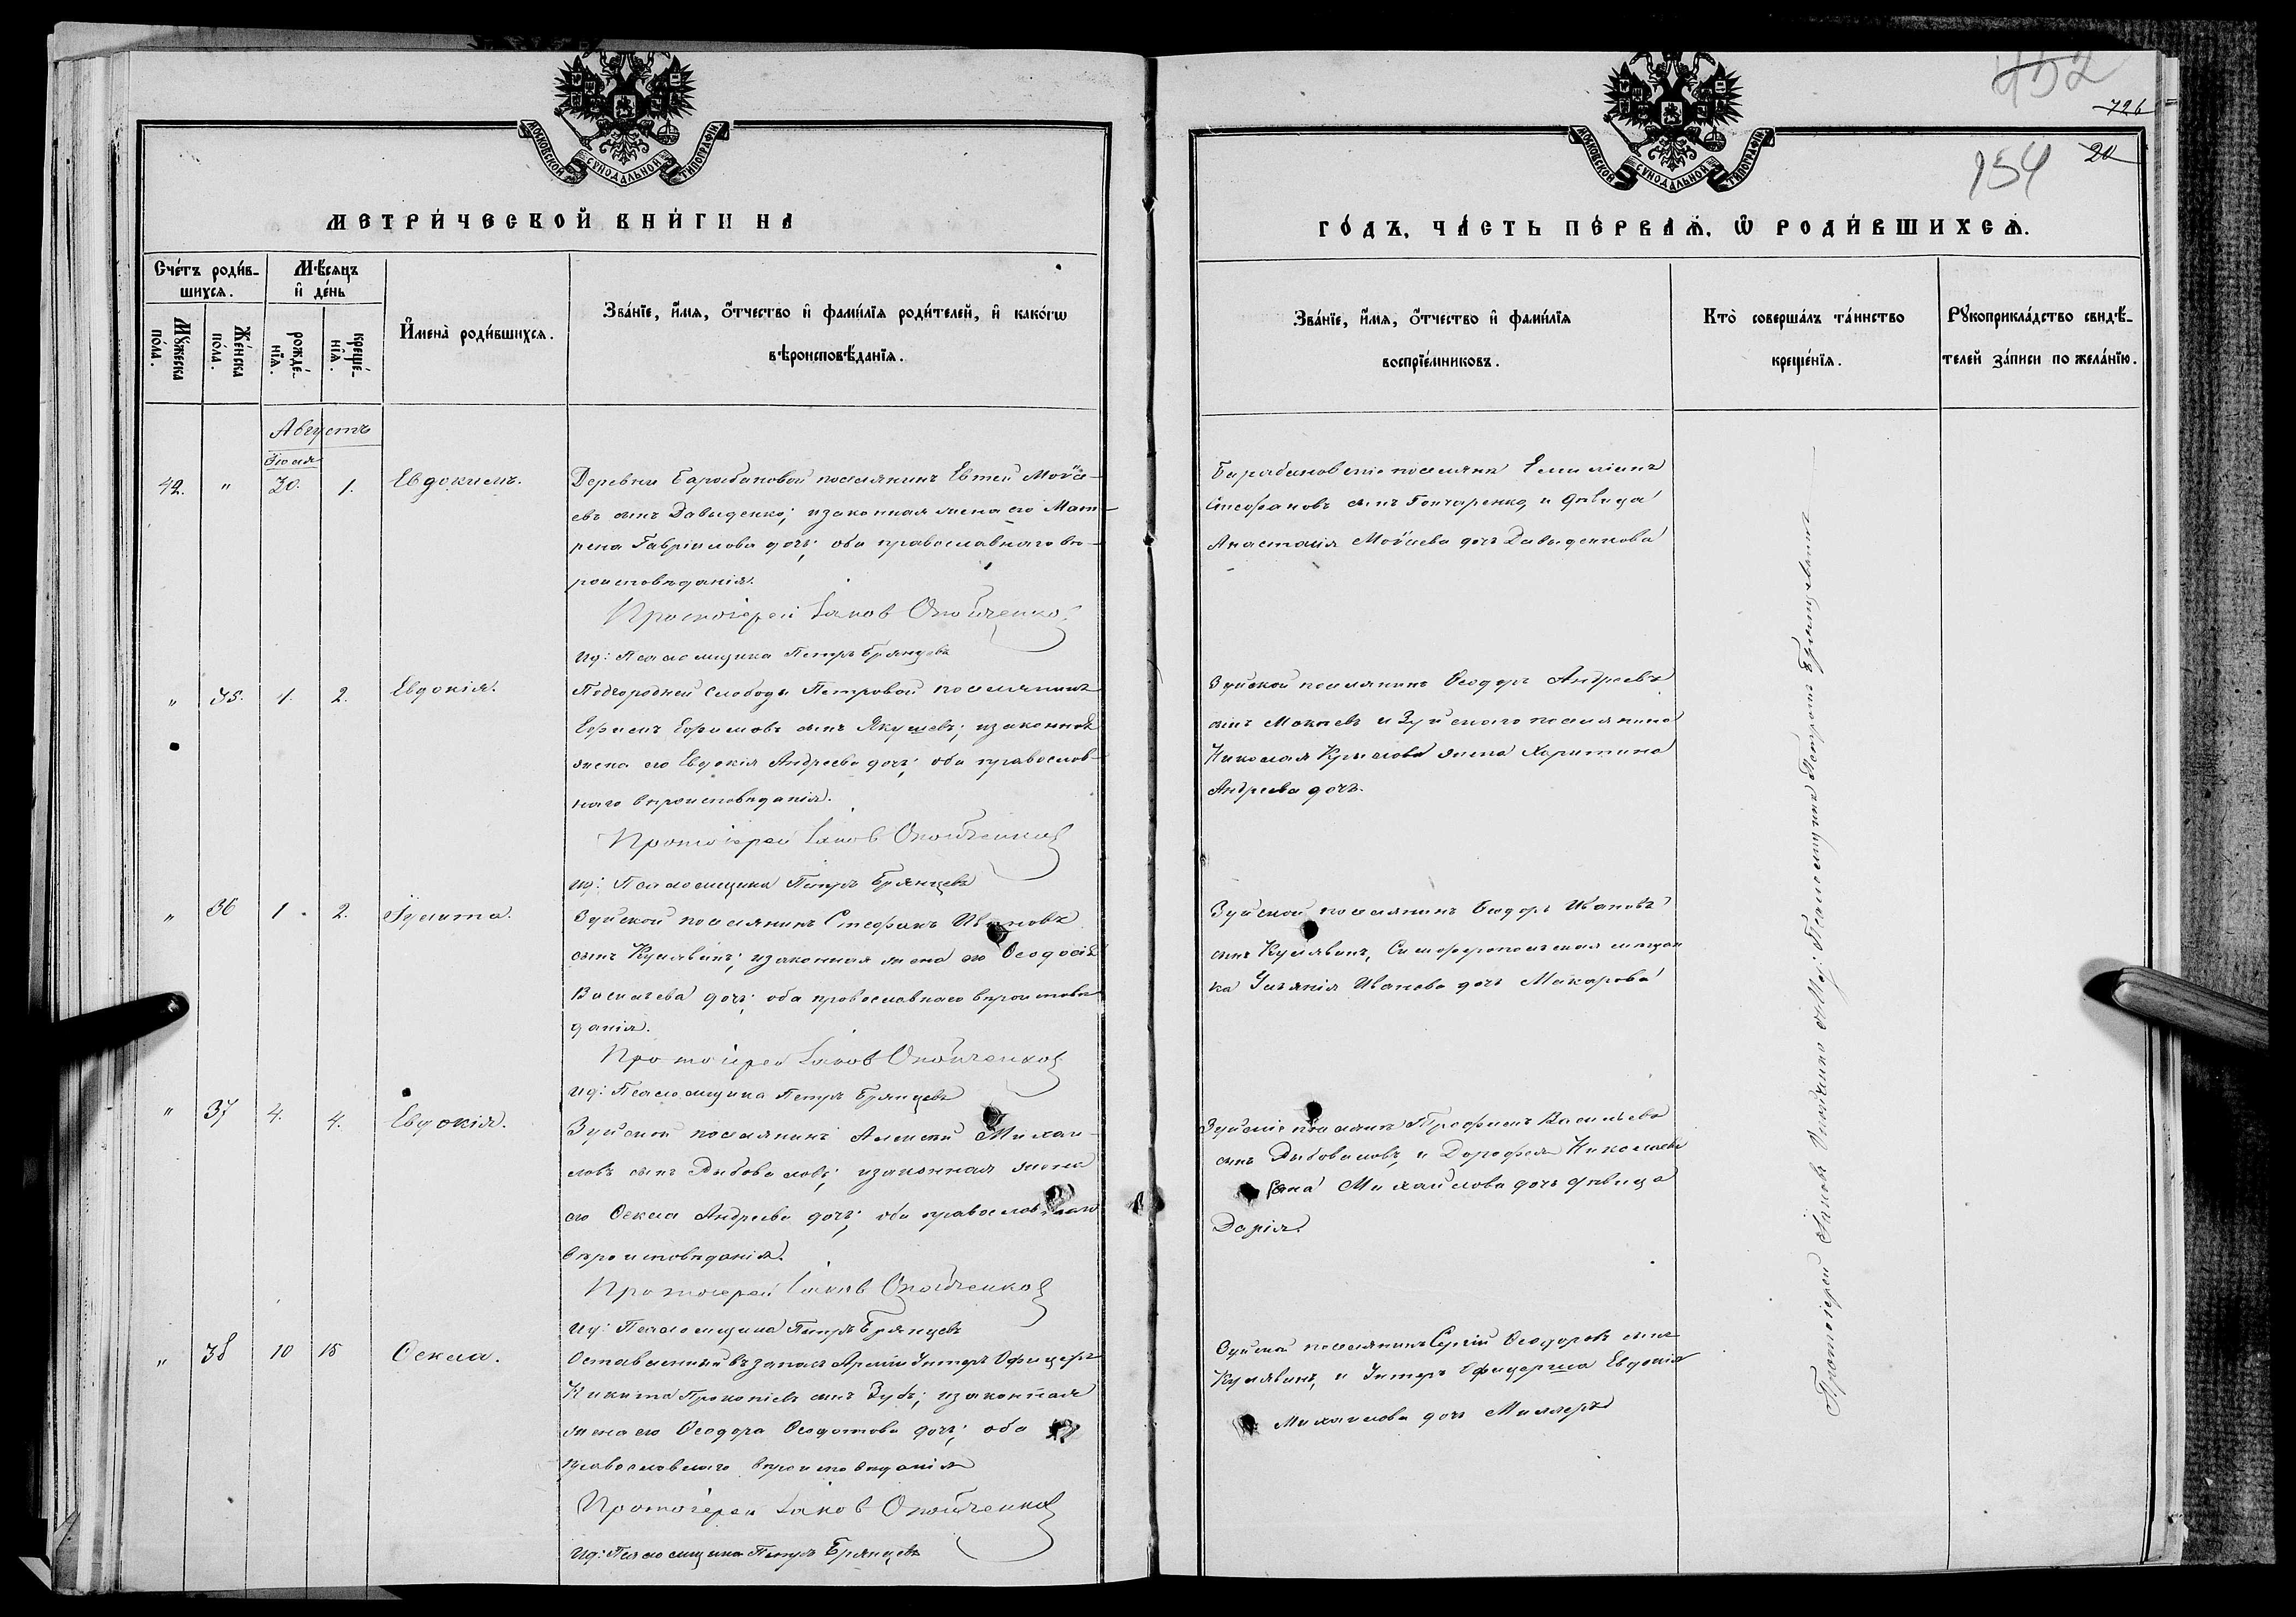 МОСКОВСКОЙ СѴНОДАЛЬНОЙ ТИПОГРАФІИ
МЕТРИ́ЧЕСКОЙ КНИ́ГИ НА
Сче́тъ роди́в-
шихся.
Мѣ́сяцъ
и҆ де́нь
Мꙋ́жеска
по́ла.
Же́нска
по́ла.
рожде́-
нїя.
креще́-
нїя.
И҆мена̀ роди́вшихся.
Зва́нїе, и҆́мя, ѻ҆́тчество и҆ фами́лїя роди́телей, и҆ како́гѡ
вѣроисповѣ́данїя.
Августъ
Іюля
42. " 30. 1. Евдокимъ.
Деревни Барабановой поселянинъ Евтей Мойсе-
евъ сынъ Давыденко; и законная жена его Мат-
рена Гавріилова дочь; оба православнаго вѣ-
роисповѣданія.
Протоіерей Іаков
Ид: Псаломщика Петръ Брянцевъ
" 35. 1. 2. Евдокія.
Подгородней слободы Петровой поселянинъ
Ефимъ Ефимовъ сынъ Якушевъ; и законная
жена его Евдокія Андреева дочь; оба православ-
наго вѣроисповѣданія.
Протоіерей Іаков
Ид: Псаломщика Петръ Брянцевъ
" 36 1. 2. Іулита.
Зуйской поселянинъ Стефанъ Ивановъ
сынъ Кулявинъ; и законная жена его Ѳеодосія
Васильева дочь; оба православнаго вѣроисповѣ
данія.
Протоіерей Іаков
Ид: Псаломщика Петръ Брянцевъ
" 37 4. 4. Евдокія.
Зуйской поселянинъ Алексей Михаи-
ловъ сынъ Рыбоваловъ; и законная жена
его Ѳекла Андреева дочь; оба православнаго
вѣроисповѣданія.
Протоіерей Іаков
Ид: Псаломщика Петръ Брянцевъ
" 38 10 15 Ѳекла.
Оставленный въ запасъ Арміи Унтеръ Офицеръ
Никита Прокопіевъ сынъ Зубъ; и законная
жена его Ѳеодора Ѳеодотова дочь; оба
православнаго вѣроисповѣданія
Протоіерей Іаков
Ид: Псаломщика Петръ Брянцевъ
452
726
154 20
МОСКОВСКОЙ СѴНОДАЛЬНОЙ ТИПОГРАФІИ
ГО́ДЪ, ЧА́СТЬ ПЕ́РВАЯ, Ѡ РОДИ́ВШИХСЯ.
Зва́нїе, и҆́мя, ѻ҆́тчество и҆ фами́лїя
воспрїе́мниковъ.
Кто̀ соверша́лъ та́инство
креще́нїя.
Рꙋкоприкла́дство свидѣ́-
телей за́писи по жела́нїю.
Барабановскіе поселяне Емиліанъ
Стефановъ сынъ Гончаренко, и дѣвица
Анастасія Мойсеева дочь Давыденкова
Зуйской поселянинъ Ѳеодоръ Андреевъ
сынъ и Зуйскаго поселянина
Николая Крылова жена Харитина
Андреева дочь.
Зуйской поселянинъ Ѳеодоръ Ивановъ
сынъ Кулявинъ, Симферопольская мѣщан
ка Ульянія Иванова дочь Макарова
Зуйскіе поселяне Трофимъ Васильевъ
сынъ Рыбоваловъ, и Дорофея Николаева
Михаилова дочь дѣвица
Дарія.
Зуйской поселянинъ Сергій Ѳеодоровъ сынъ
Кулявинъ, и Унтеръ Офицерша Евдокія
Михаилова дочь Миллеръ
Протоіерей Іаковъ съ Ид: Псаломщика Петромъ Брянцевымъ